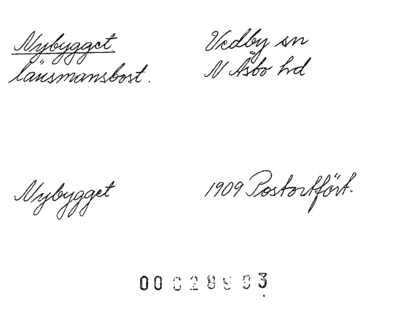 Nybygget
länsmansbost.
Vedby sn
N Åsbo hd
Nybygget
1909 Postortfört.